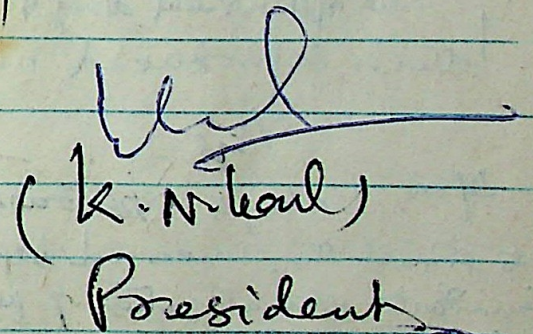 (K. N. Kaul)
President